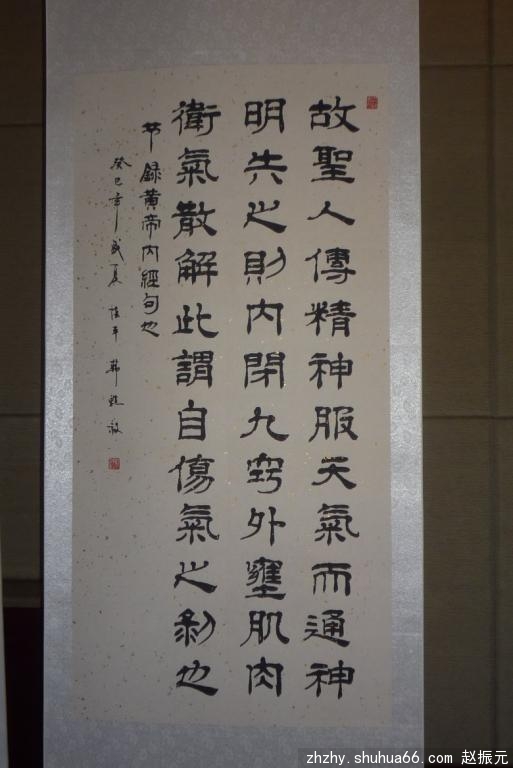 故聖人傳精神服天氣而通神
明失之則内閉九竅外壅肌肉
衛氣散解此謂自傷氣之削也
节錄黄帝内經句也
癸巳年盛夏
zhzhy.shuhua66.com 赵振元